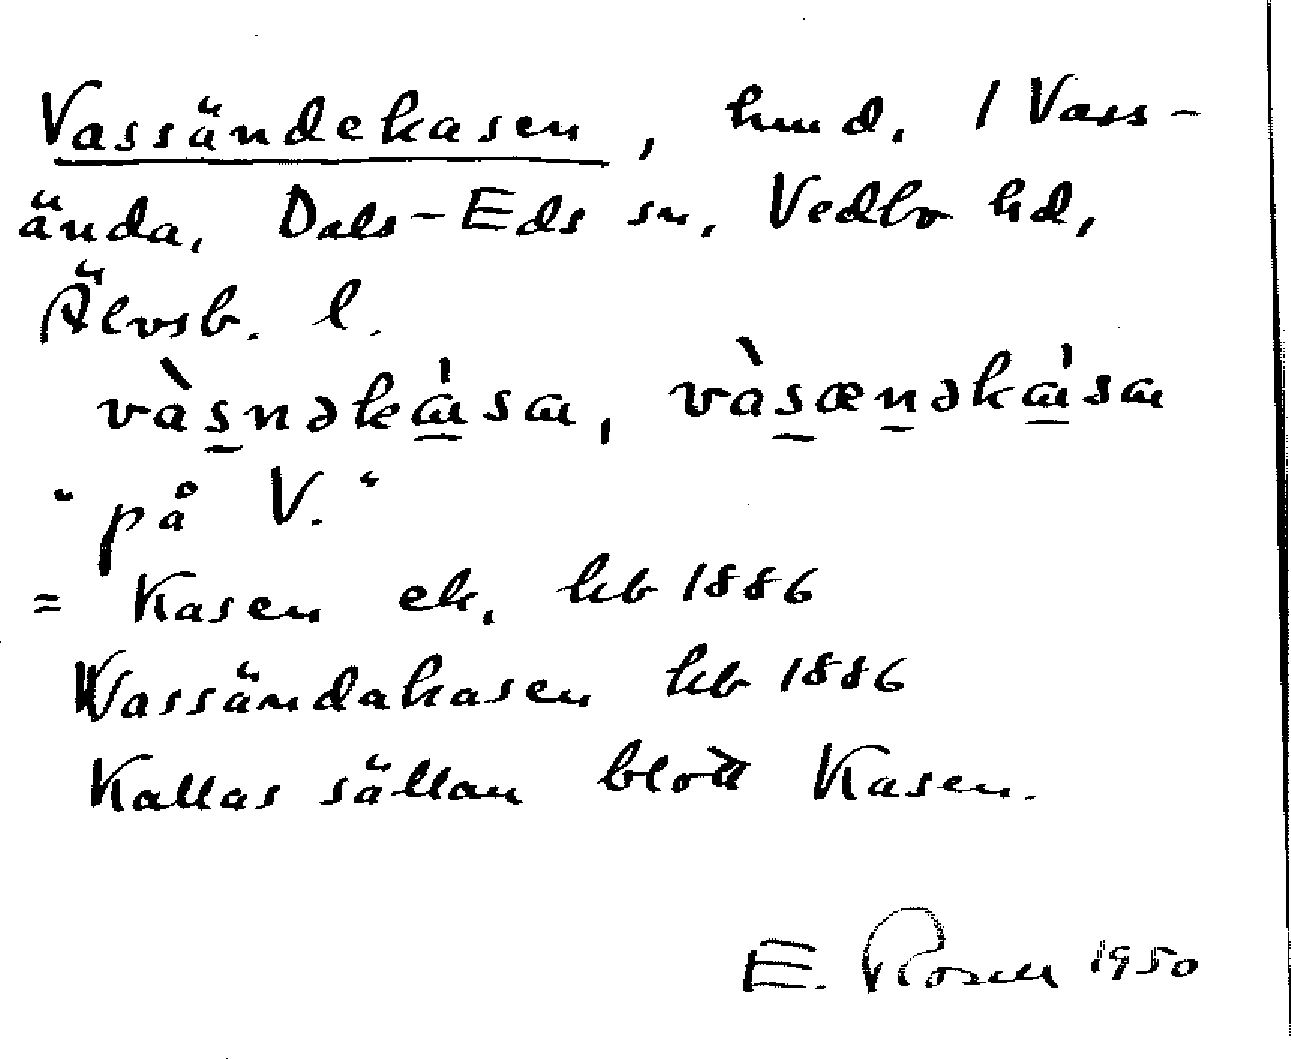 Vassändekasen, hmd. / Vass-
ända, Dals-Eds sn, Vedbo hd,
Älvsb. l.
vàs̲nəkɑ̲́sɑ, vàs̲æn̲əkɑ̲́sɑ
"på V."
= Kasen ek. kb 1886
Wassändakasen kb 1886
Kallas sällan blott Kasen.
E. Rosell 1950